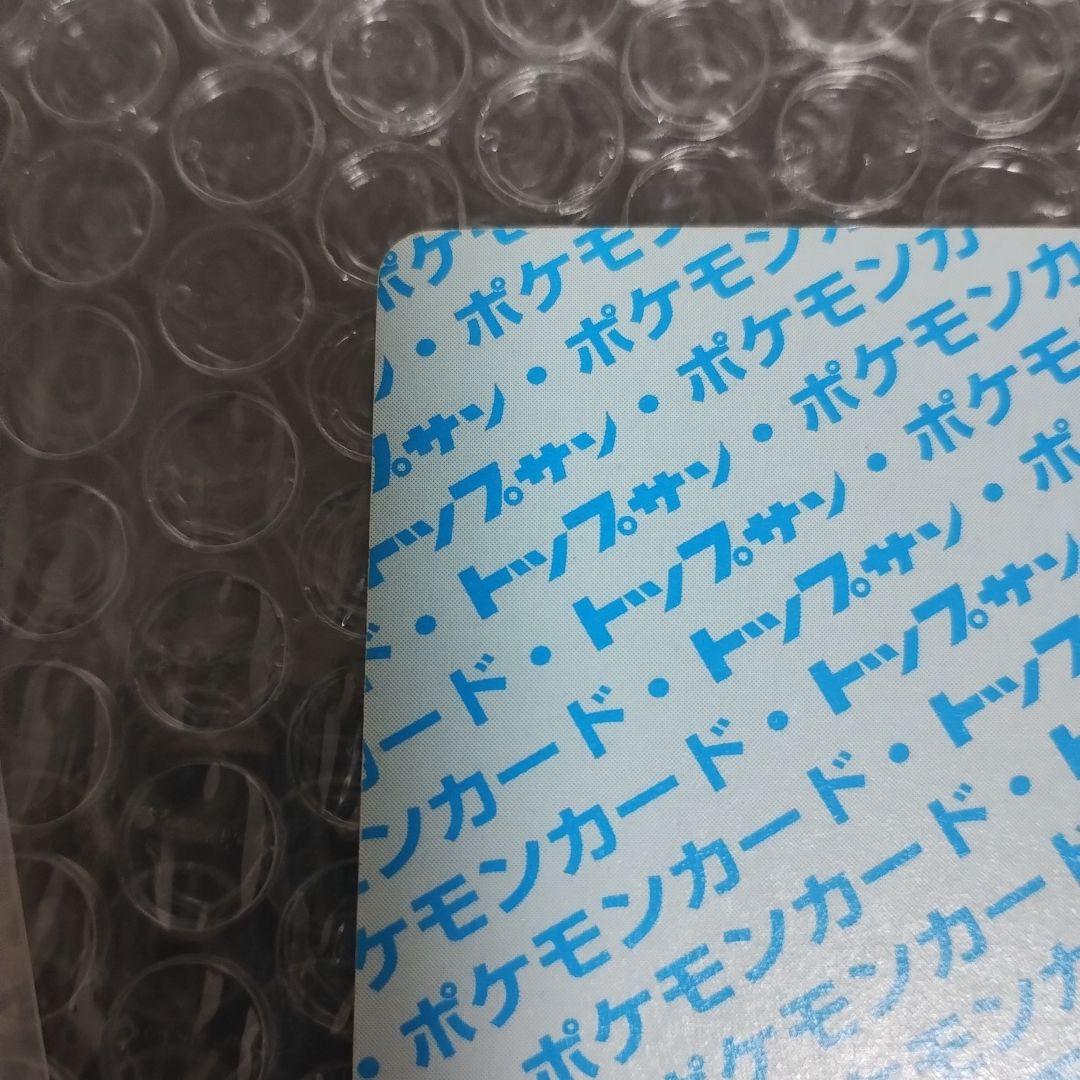 ポケ
ン・ポケモン
プサン・ポケモン
トップサン・ポケモンカ
ド・トップサン・ポケモンカ
カード・トップサン・ポケモ
ンカード・トップサン・ポ
ケモンカード・トップサン
・ポケモンカード・トップ
ポケモンカード・
ポケモンカー